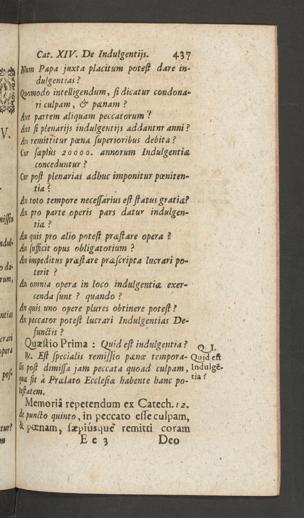 Cat. XIV. De Indulgentijs. 437
Num Papa juxta placitum potest dare in-
dulgentias?
Quomodo intelligendum, si dicatur condona-
ri culpam, & pœnam?
Aut partem aliquam peccatorum?
Aut si plenarijs indulgentijs addantur anni?
An remittitur pœna superioribus debita?
Cur sæpius 20000. annorum Indulgentiæ
conceduntur?
Cur post plenarias adhuc imponitur pœniten-
tia?
An toto tempore necessarius est status gratiæ?
An pro parte operis pars datur indulgen-
tiæ?
An quis pro alio potest præstare opera?
An sufficit opus obligatorium?
An impeditus præstare præscripta lucrari po-
terit?
An omnia opera in loco indulgentiæ exer-
cenda sunt? quando?
An quis uno opere plures obtinere potest?
An peccator potest lucrari Indulgentias De-
functis?
Quæstio Prima: Quid est indulgentia?
R. Est specialis remissio pœnæ tempora-
lis post dimissa jam peccata quoad culpam,
quæ fit à Prælato Ecclesiæ habente hanc po-
testatem.
Q. I.
Quid est
Indulgē-
tia?
Memoriâ repetendum ex Catech. 12.
de puncto quinto, in peccato esse culpam,
& pœnam, sæpiúsque remitti coram
E e 3 Deo